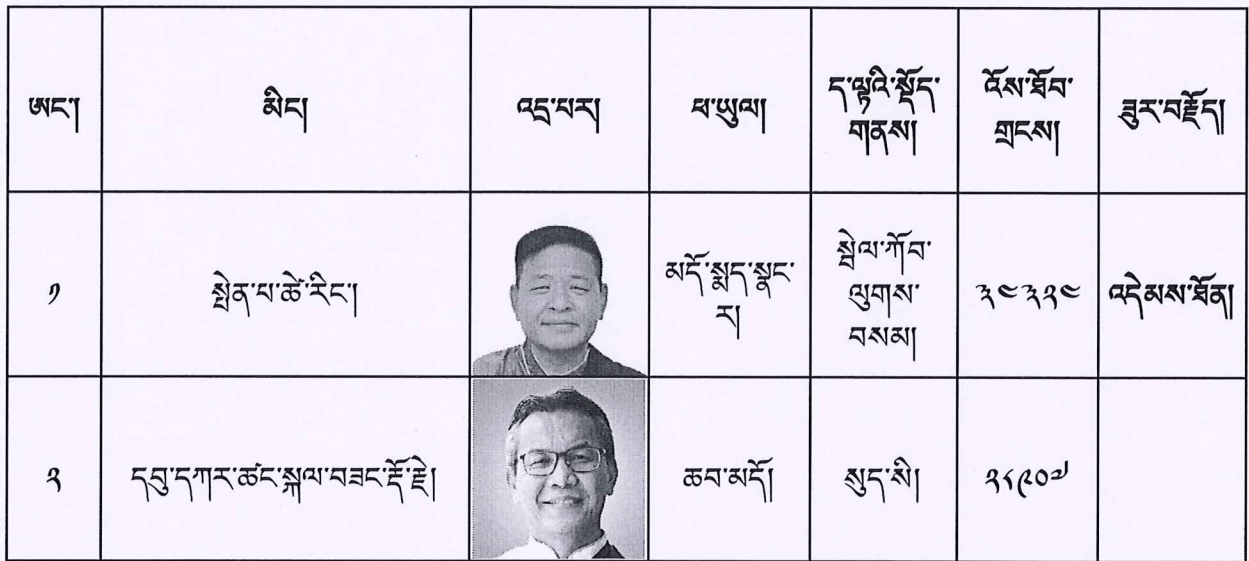 ཨང་།
མིང།
འདྲ་པར།
ཕ་ཡུལ།
ད་ལྟའི་སྡོད་
གནས།
འོས་ཐོབ་
གྲངས།
ཟུར་བརྗོད།
༡
སྤེན་པ་ཚེ་རིང་།
མདོ་སྨད་སྣང་
ར།
སྦེལ་ཀོབ་
ལུགས་
བསམ།
༣༤༣༢༤
འདེམས་ཐོན།
༢
དབུ་དཀར་ཚང་སྐལ་བཟང་རྡོ་རྗེ།
ཆབ་མདོ།
སུད་སི།
༢༨༩༠༧